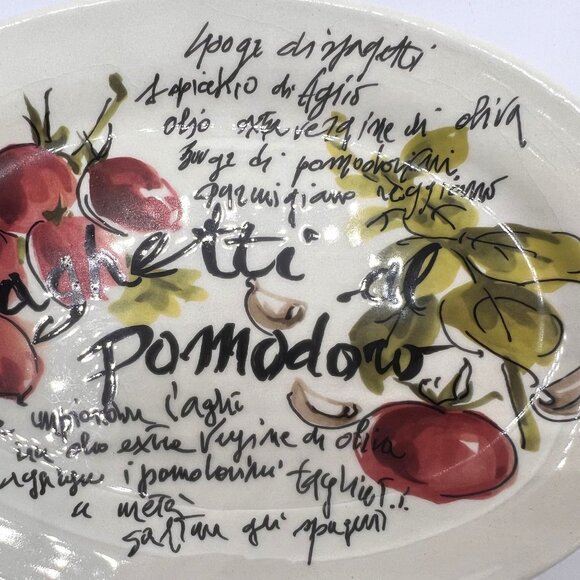 400ge di spagetti
1 spicchio di Aglio
olio extra vergine di oliva
300ge di pomodorini
parmigiano reggiano
aghetti al
pomodoro
l'agli
olio extra vergine di oliva
i pomodorini tagliati
a metà
gli spagetti